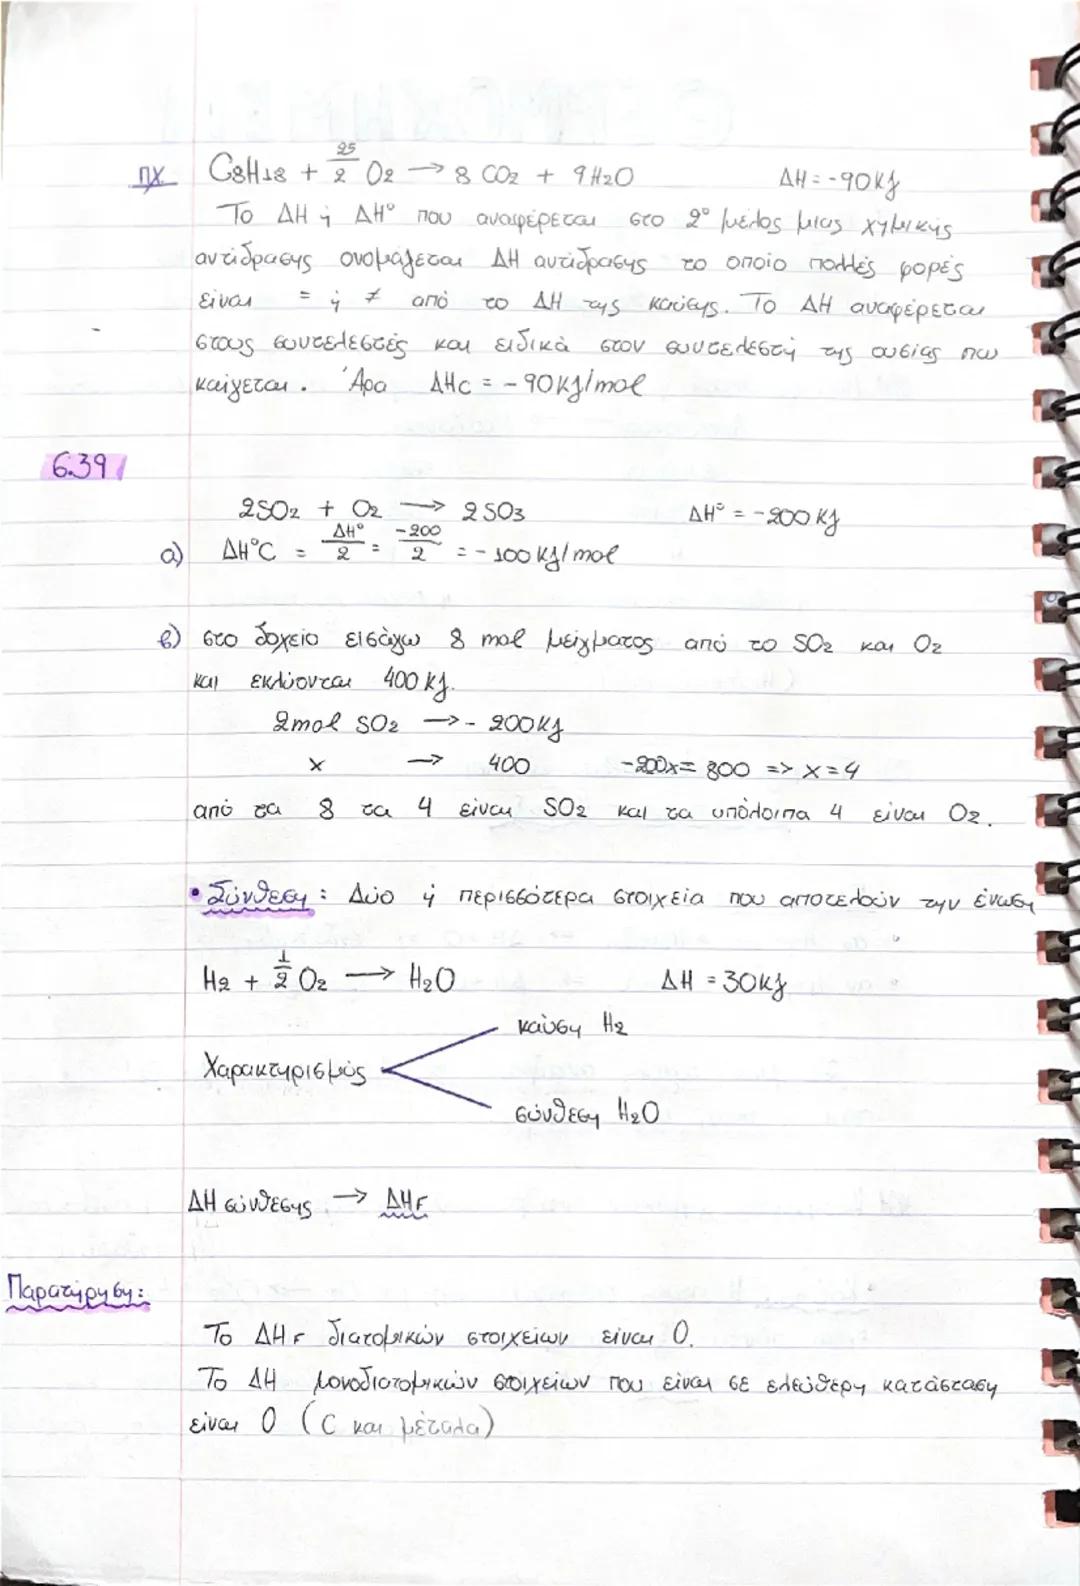 πχ C8H18 + 25/2 O2 → 8 CO2 + 9H2O ΔH = -90kj
Το ΔΗ ή ΔΗ° που αναφέρεται στο 2° μέλος μιας χημικής
αντίδρασης ονομάζεται ΔΗ αντίδρασης το οποίο πολλές φορές
είναι = ή ≠ από το ΔΗ της καύσης. Το ΔΗ αναφέρεται
στους συντελεστές και ειδικά στον συντελεστή της ουσίας που
καίγεται. Άρα ΔHc = -90kj/mol
6.39
2SO2 + O2 → 2SO3 ΔH° = -200kj
α) ΔH°C = ΔH°/2 = -200/2 = -100kj/mol
β) στο δοχείο εισάγω 8 mol μείγματος από το SO2 και O2
και εκλύονται 400kj.
2mol SO2 → - 200kj
x → 400 -200x = 800 => x=4
από τα 8 τα 4 είναι SO2 και τα υπόλοιπα 4 είναι O2.
• Σύνθεση: Δύο ή περισσότερα στοιχεία που αποτελούν την ένωση
H2 + 1/2 O2 → H2O ΔH = 30kj
καύση H2
Χαρακτηρισμός
σύνθεση H2O
ΔΗ σύνθεσης → ΔHF
Παρατήρηση:
Το ΔHF διατομικών στοιχείων είναι 0.
Το ΔΗ μονοδιατομικών στοιχείων που είναι σε ελεύθερη κατάσταση
είναι 0 (C και μέταλα)